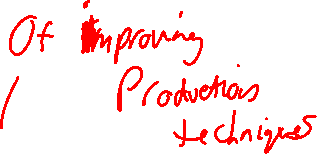 Of improving
Productions
techniques